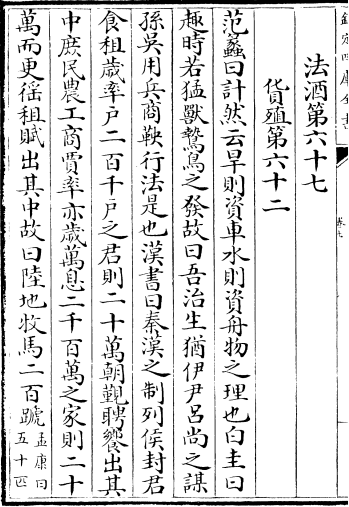 欽定四庫全書
法酒第六十七
貨殖第六十二
范蠡曰計然云旱則資車水則資舟物之理也白圭曰
趣時若猛獸鷙鳥之發故曰吾治生猶伊尹呂尚之謀
孫吳用兵商鞅行法是也漢書曰秦漢之制列侯封君
食租歲率戶二百千戶之君則二十萬朝覲聘饗出其
中庶民農工商賈率亦歲萬息二千百萬之家則二十
萬而更徭租賦出其中故曰陸地牧馬二百蹏孟康曰五十匹